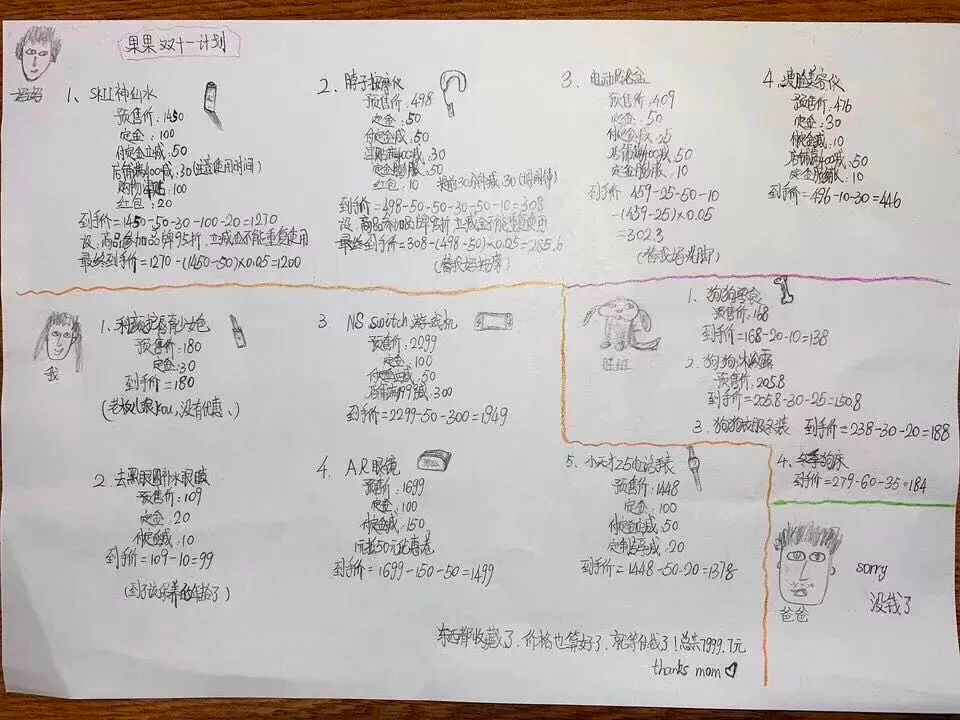 果果双十一计划
妈妈
1、SKII神仙水
预售价：1450
定金：100
付定立减：50
店铺满400减：30(注意使用时间)
购物津贴：100
红包：20
到手价=1450-50-30-100-20=1270
设：商品参加品牌95折，立减金不能重复使用
最终到手价=1270-(1450-50)×0.05=1200
2、脖子按摩仪
预售价：498
定金：50
付定金减：50
满400减：30
定金膨胀：50
红包：10 提前30分钟减：30
到手价=498-50-50-30-50-10=308
设：商品参加品牌95折 立减金不能重复使用
最终到手价=308-(498-50)×0.05=285.6
(替我妈按摩)
3、电动
预售价：409
定金：50
付定立减：25
店铺满400减：50
定金膨胀：10
到手价 459-25-50-10
-(459-25)×0.05
=302.3
(替我妈洗脚)
4、瘦脸美容仪
预售价：476
定金：30
付定金减：10
店铺满400减：50
定金膨胀：10
到手价=496-10-30=446
我
1、
预售价：180
定金：30
到手价=180
(老板儿狠you，没有优惠、)
2、去黑眼圈补水眼膜
预售价：109
定金：20
付定金减：10
到手价=109-10=99
(到了该保养的年龄了)
3 NS switch游戏机
预售价：2299
定金：100
付定立减：50
店铺满1999减：300
到手价=2299-50-300=1949
4、AR眼镜
预售价：1699
定金：100
付定金减：150
1元抢50元优惠卷
到手价=1699-150-50=1499
5、小天才Z5电话手表
预售价：1448
定金：100
付定立减：50
减：20
到手价=1448-50-20=1378
旺旺
1、狗狗零食
预售价：168
到手价=168-20-10=138
2、狗狗沐浴露
预售价：205.8
到手价=205.8-30-25=150.8
3、狗狗衣服冬装 到手价=238-30-20=188
4、冬季狗床
到手价=279-60-35=184
爸爸
sorry
没钱了
东西都收藏了，价格也算好了，就等付钱了！总共7999.7元
thanks mom